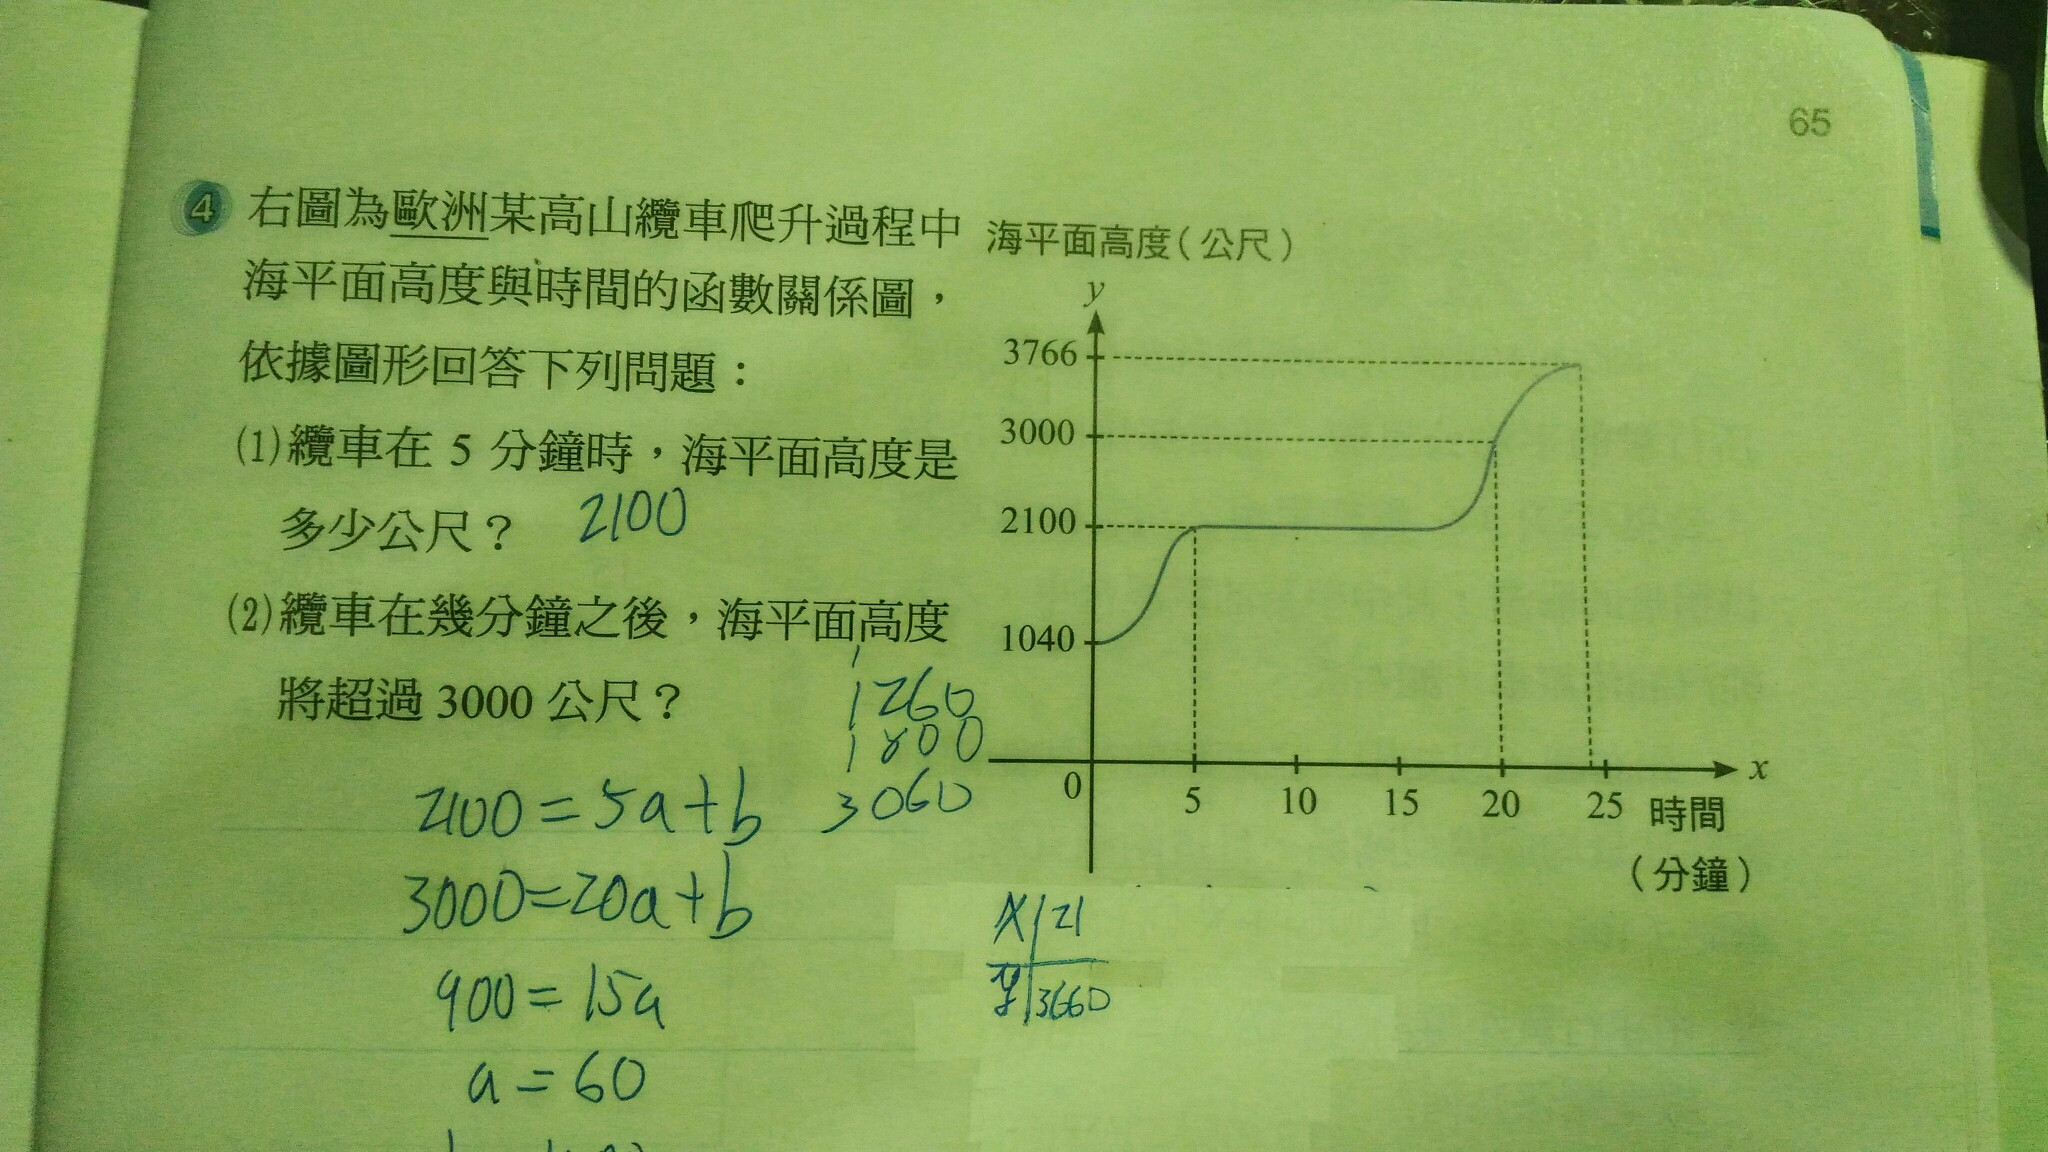 65
4 右圖為歐洲某高山纜車爬升過程中
海平面高度與時間的函數關係圖，
依據圖形回答下列問題：
(1)纜車在 5 分鐘時，海平面高度是
多少公尺？ 2100
(2)纜車在幾分鐘之後，海平面高度
將超過 3000 公尺？
1260
1800
3060
2100=5a+b
3000=20a+b
900=15a
a=60
海平面高度(公尺)
y
3766
3000
2100
1040
0 5 10 15 20 25 x
時間
(分鐘)
x 21
y 3660